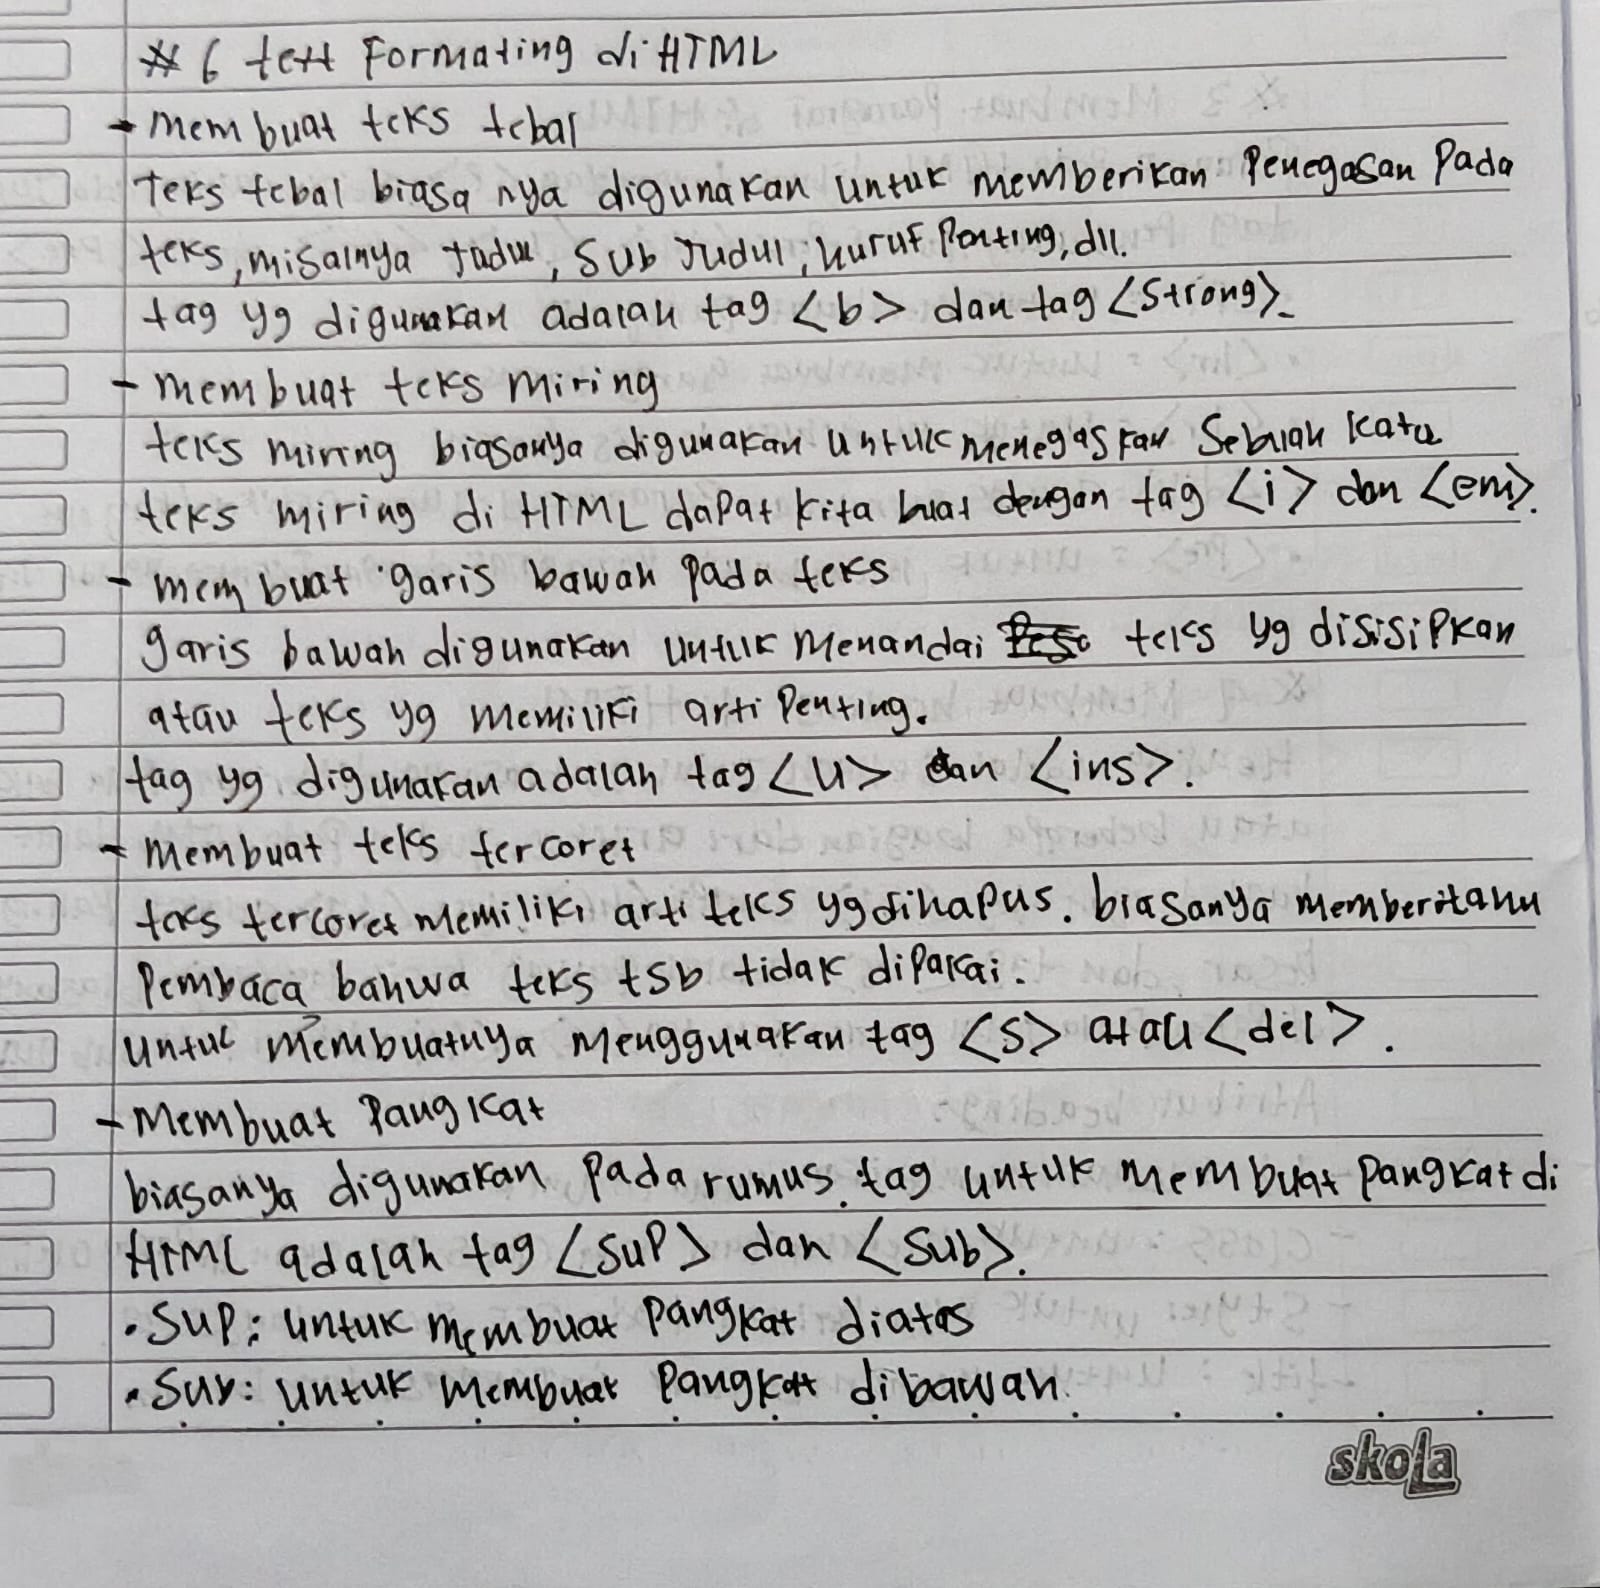 # 6 text Formating di HTML
- membuat teks tebal
Teks tebal biasa nya digunakan untuk memberikan Penegasan Pada
teks, misalnya Judul, Sub Judul, huruf Penting, dll.
tag yg digunakan adalah tag <b> dan tag <Strong>.
- membuat teks miring
teks miring biasanya digunakan untuk menegaskan Sebuah kata
teks miring di HTML dapat kita buat dengan tag <i> dan <em>.
- membuat garis bawah pada teks
garis bawah digunakan untuk Menandai teks yg disisipkan
atau teks yg memiliki arti Penting.
tag yg digunakan adalah tag <u> dan <ins>.
- Membuat teks tercoret
teks tercoret memiliki arti teks yg dihapus. biasanya memberitahu
Pembaca bahwa teks tsb tidak dipakai.
untuk membuatnya menggunakan tag <s> atau <del>.
- Membuat Pangkat
biasanya digunakan pada rumus. tag untuk membuat Pangkat di
HTML adalah tag <sup> dan <sub>.
• Sup: untuk membuat Pangkat diatas
• Sub: untuk membuat Pangkat dibawah.
skola